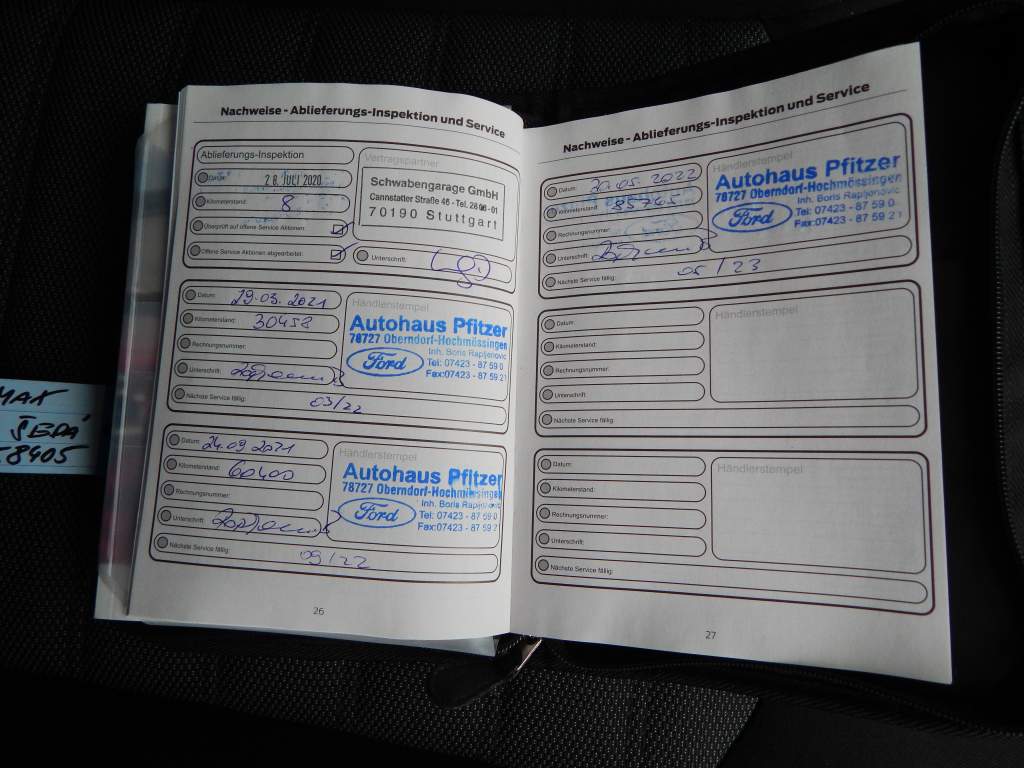 MAX
ŠEDÁ
8405
Nachweise - Ablieferungs-Inspektion und Service
Ablieferungs-Inspektion
Datum: 28. JULI 2020
Kilometerstand: 8
Überprüft auf offene Service Aktionen
Offene Service Aktionen abgearbeitet:
Vertragspartner
Schwabengarage GmbH
Cannstatter Straße 46 - Tel. 2808-01
70190 Stuttgart
Unterschrift:
Datum: 29.03.2021
Kilometerstand: 30458
Rechnungsnummer:
Unterschrift:
Nächste Service fällig: 03/22
Händlerstempel
Autohaus Pfitzer
78727 Oberndorf-Hochmössingen
Inh. Boris Rapljenovic
Ford
Tel: 07423 - 87 59 0
Fax:07423 - 87 59 21
Datum: 24.09.2021
Kilometerstand: 60400
Rechnungsnummer:
Unterschrift:
Nächste Service fällig: 09/22
Händlerstempel
Autohaus Pfitzer
78727 Oberndorf-Hochmössingen
Inh. Boris Rapljenovic
Ford
Tel: 07423 - 87 59 0
Fax:07423 - 87 59 21
26
Nachweise - Ablieferungs-Inspektion und Service
Datum: 20.05.2022
Kilometerstand: 85765
Rechnungsnummer:
Unterschrift:
Nächste Service fällig: 05/23
Händlerstempel
Autohaus Pfitzer
78727 Oberndorf-Hochmössingen
Inh. Boris Rapljenovic
Ford
Tel: 07423 - 87 59 0
Fax:07423 - 87 59 21
Datum:
Kilometerstand:
Rechnungsnummer:
Unterschrift:
Nächste Service fällig:
Händlerstempel
Datum:
Kilometerstand:
Rechnungsnummer:
Unterschrift:
Nächste Service fällig:
Händlerstempel
27